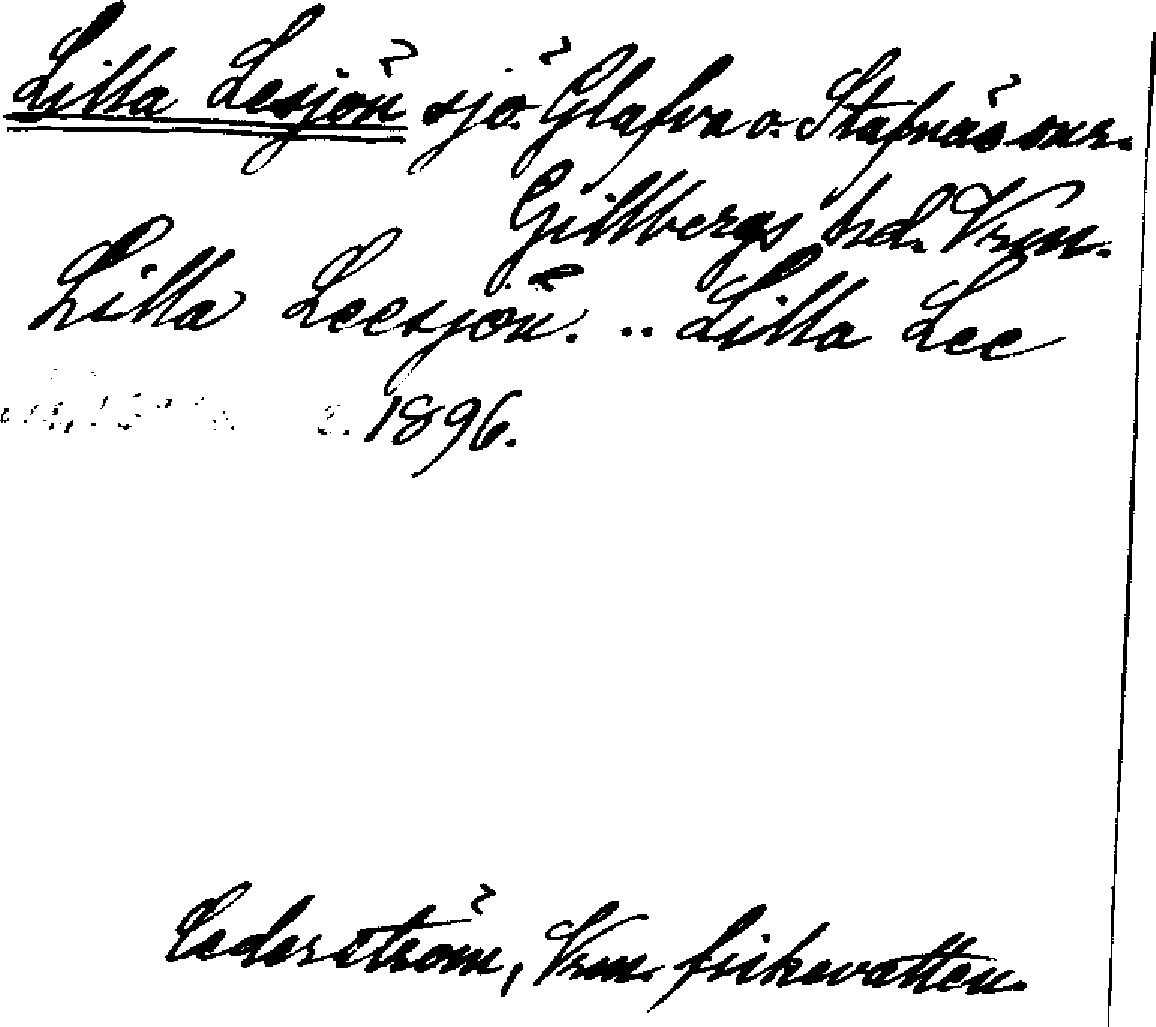 Lilla Lesjön sjö. Glafva o. Stafnäs snr.
Gillbergs hd. Vrm.
Lilla Leesjön. .. Lilla Lee
1896.
Cederström, Vrm. fiskevatten.